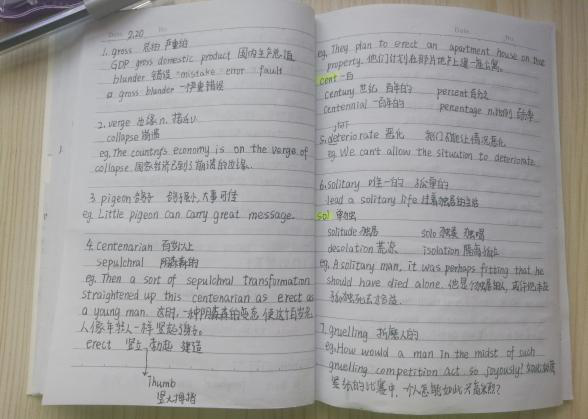 Date 2.20 No
1. gross 总的 严重的
GDP gross domestic product 国内生产总值
blunder 错误 mistake error fault
a gross blunder 一个严重错误
2. verge 边缘 n.
collapse 崩溃
eg. The country's economy is on the verge of
collapse. 国家经济已到了崩溃的边缘.
3. pigeon 鸽子 鸽子虽小,大事可佳
eg. Little pigeon can carry great message.
4. centenarian 百岁人
sepulchral 阴森森的
eg. Then a sort of sepulchral transformation
straightened up this centenarian as erect as
a young man. 这时,一种阴森森的变态使这个百岁老
人像年轻人一样竖起身子。
erect 竖立 勃起 建造
Thumb
竖大拇指
Date No
eg. They plan to erect an apartment house on that
property. 他们计划在那片地产上建一座公寓.
cent 一百
century 世纪 百年的 percent 百分之
centennial 一百年的 percentage n.
5. deteriorate 恶化 我们不能让情况恶化
eg. We can't allow the situation to deteriorate.
6. solitary 唯一的 孤单的
lead a solitary life 过着独居的生活
sol 单独
solitude 独居 solo 独奏 独唱
desolation 荒凉 isolation 隔离
eg. A solitary man, it was perhaps fitting that he
should have died alone. 他是个独居的人,或许他本应
孤独死去才合适.
7. gruelling 折磨人的
eg. How would a man in the midst of such
gruelling competition act so joyously? 如此
紧张的比赛中,一个人怎能如此兴高采烈?